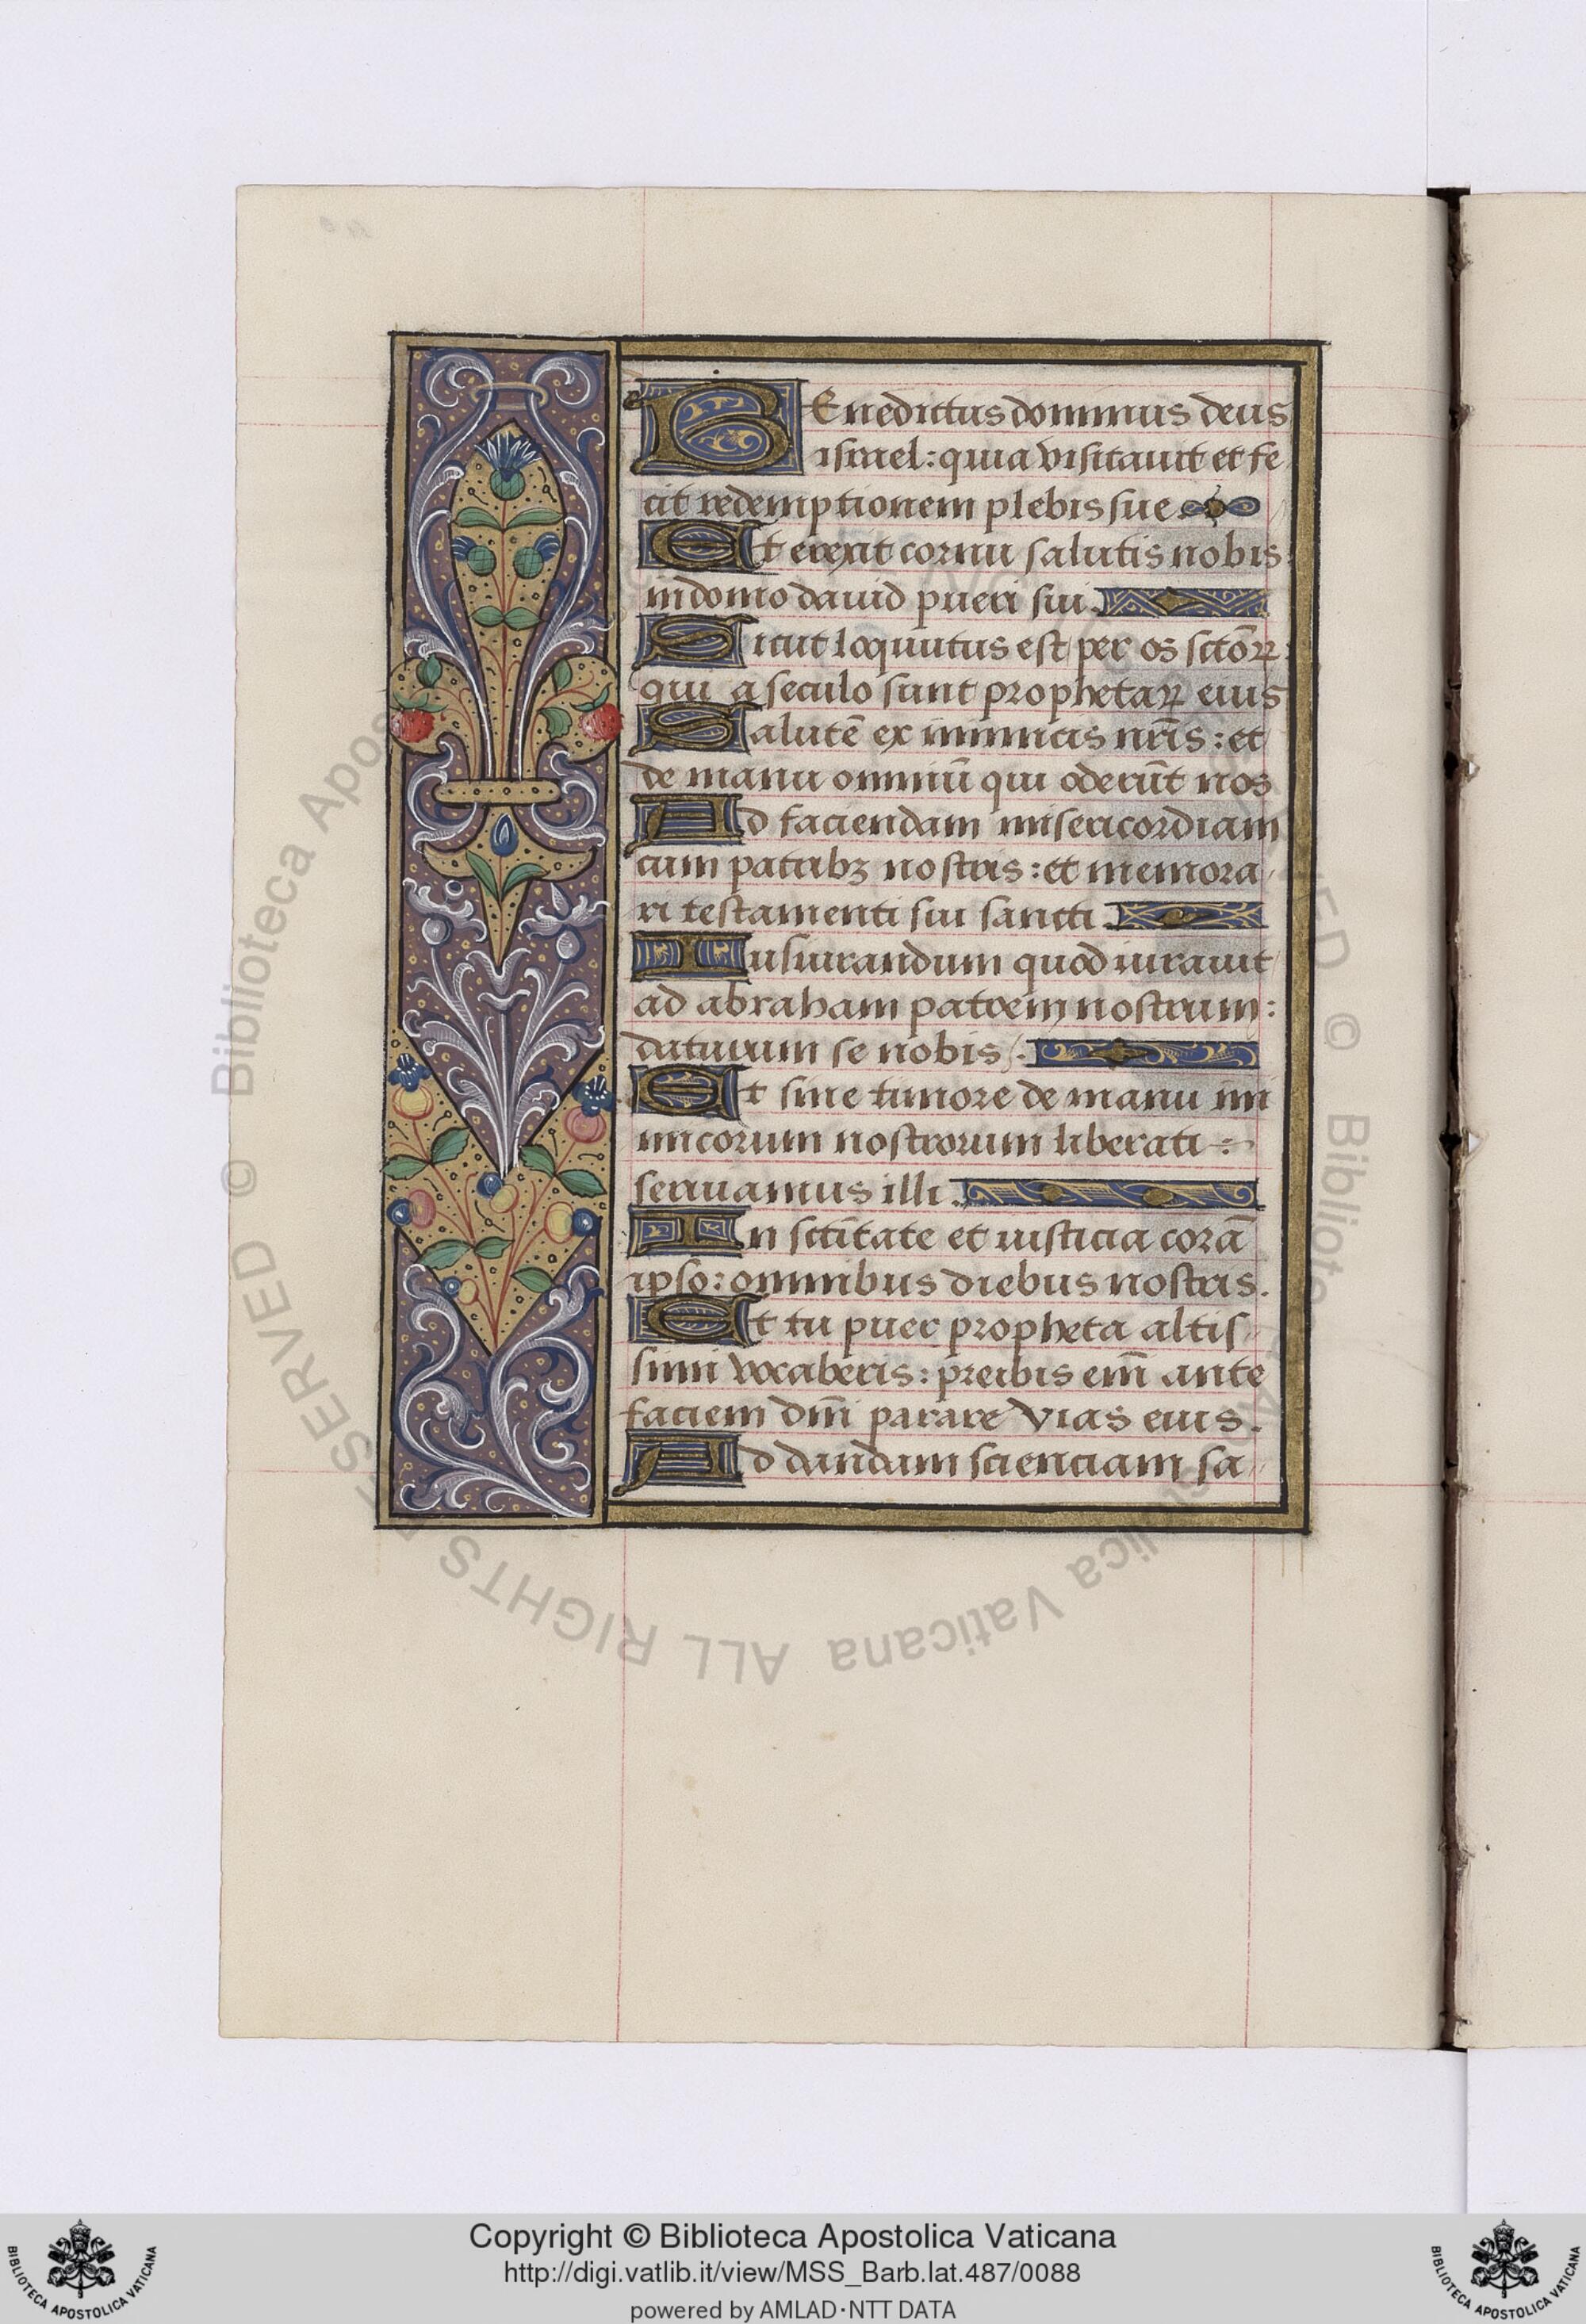 BEnedictus dominus deus
israel: quia visitauit et fe
cit redemptionem plebis sue
Et erexit cornu salutis nobis
in domo dauid pueri sui.
Sicut loquutus est per os sctōꝝ
qui a seculo sunt prophetaꝝ eius
Salutē ex inimicis nr̄is: et
de manu omniū qui oderūt nos
Ad faciendam misericordiam
cum patribꝫ nostris: et memora
ri testamenti sui sancti.
Iusiurandum quod iurauit
ad abraham patrem nostrum:
daturum se nobis.
Et sine timore de manu ini
micorum nostrorum liberati:
seruamus illi.
In sctītate et iusticia corā
ipso: omnibus diebus nostris.
Et tu puer propheta altis
simi vocaberis: preibis em̄ ante
faciem dm̄i parare vias eius.
Ad dandam scienciam sa
© Biblioteca Apostolica Vaticana ALL RIGHTS RESERVED
Copyright © Biblioteca Apostolica Vaticana
http://digi.vatlib.it/view/MSS_Barb.lat.487/0088
powered by AMLAD·NTT DATA
BIBLIOTECA APOSTOLICA VATICANA
BIBLIOTECA APOSTOLICA VATICANA